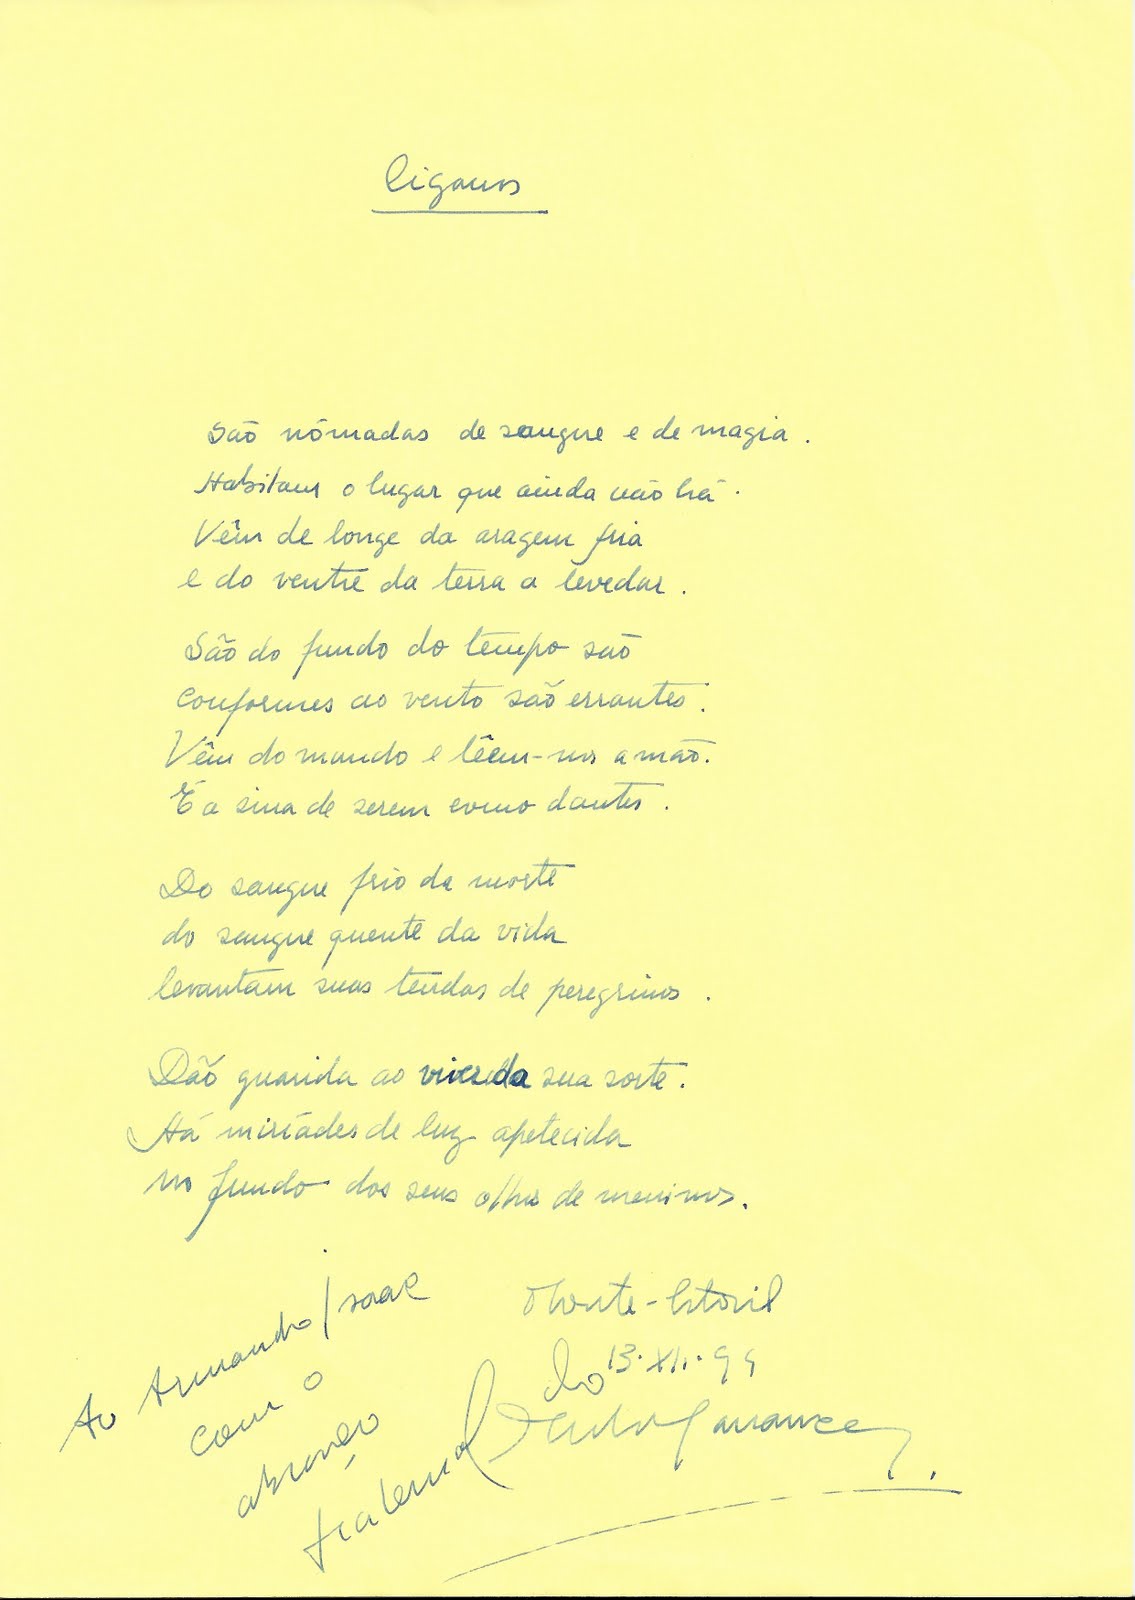 Ciganos
São nómadas de sangue e de magia.
Habitam o lugar que ainda não há.
Vêm de longe da aragem fria
e do ventre da terra a levedar.
São do fundo do tempo são
conformes ao vento são errantes.
Vêm do mundo e lêem-nos a mão.
É a sina de serem como dantes.
Do sangue frio da morte
do sangue quente da vida
levantam suas tendas de peregrinos.
Dão guarida ao viver da sua sorte.
Há miríades de luz apetecida
no fundo dos seus olhos de meninos.
Monte-Estoril
13.XII.99
Ao Armando/Isaac
com o
abraço
fraternal
do